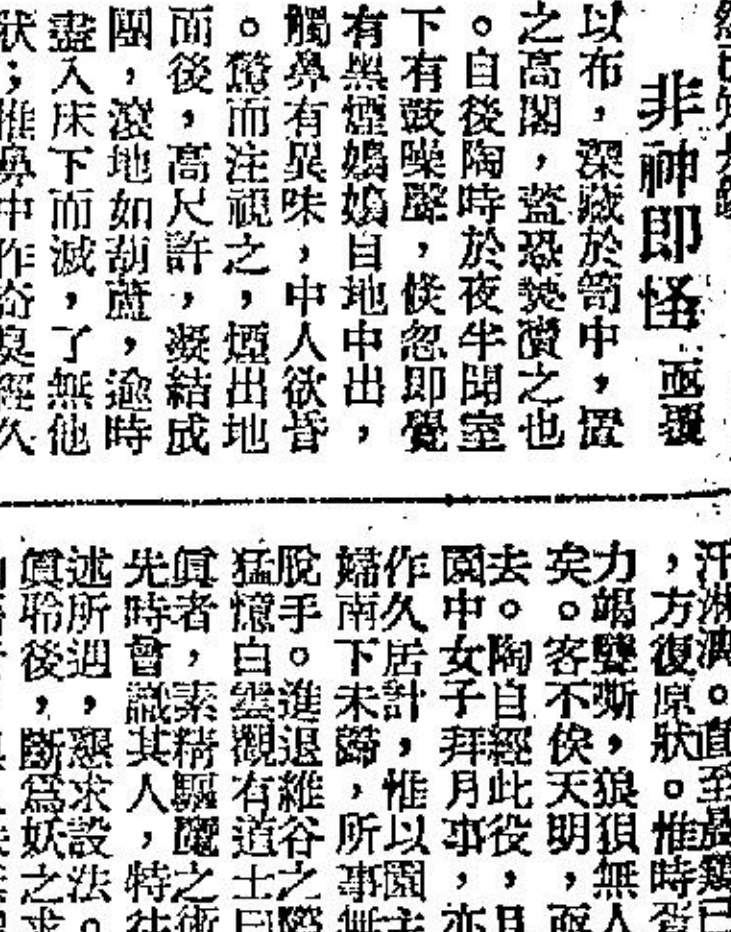 非神即怪
亟覆
以布，深藏於笥中，置
之高閣，蓋恐褻瀆之也
。自後陶時於夜半聞室
下有鼓噪聲，倏忽即覺
有黑煙嬝嬝自地中出，
觸鼻有異味，中人欲昏
。驚而注視之，煙出地
而後，高尺許，凝結成
團，滾地如葫蘆，逾時
盡入床下而滅，了無他
狀；惟鼻中作奇臭經久
汗淋漓。直至晨鷄已
，方復原狀。惟時
力竭聲嘶，狼狽無人
矣。客不俟天明，
去。陶自經此役，
園中女子拜月事，亦
作久居計，惟以園主
婦南下未歸，所事無
脫手。進退維谷之際
猛憶白雲觀有道士曰
眞者，素精驅魔之術
先時曾識其人，特往
述所遇，懇求設法。
眞聆後，斷爲妖之求